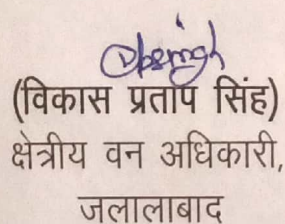 (विकास प्रताप सिंह)
क्षेत्रीय वन अधिकारी,
जलालाबाद